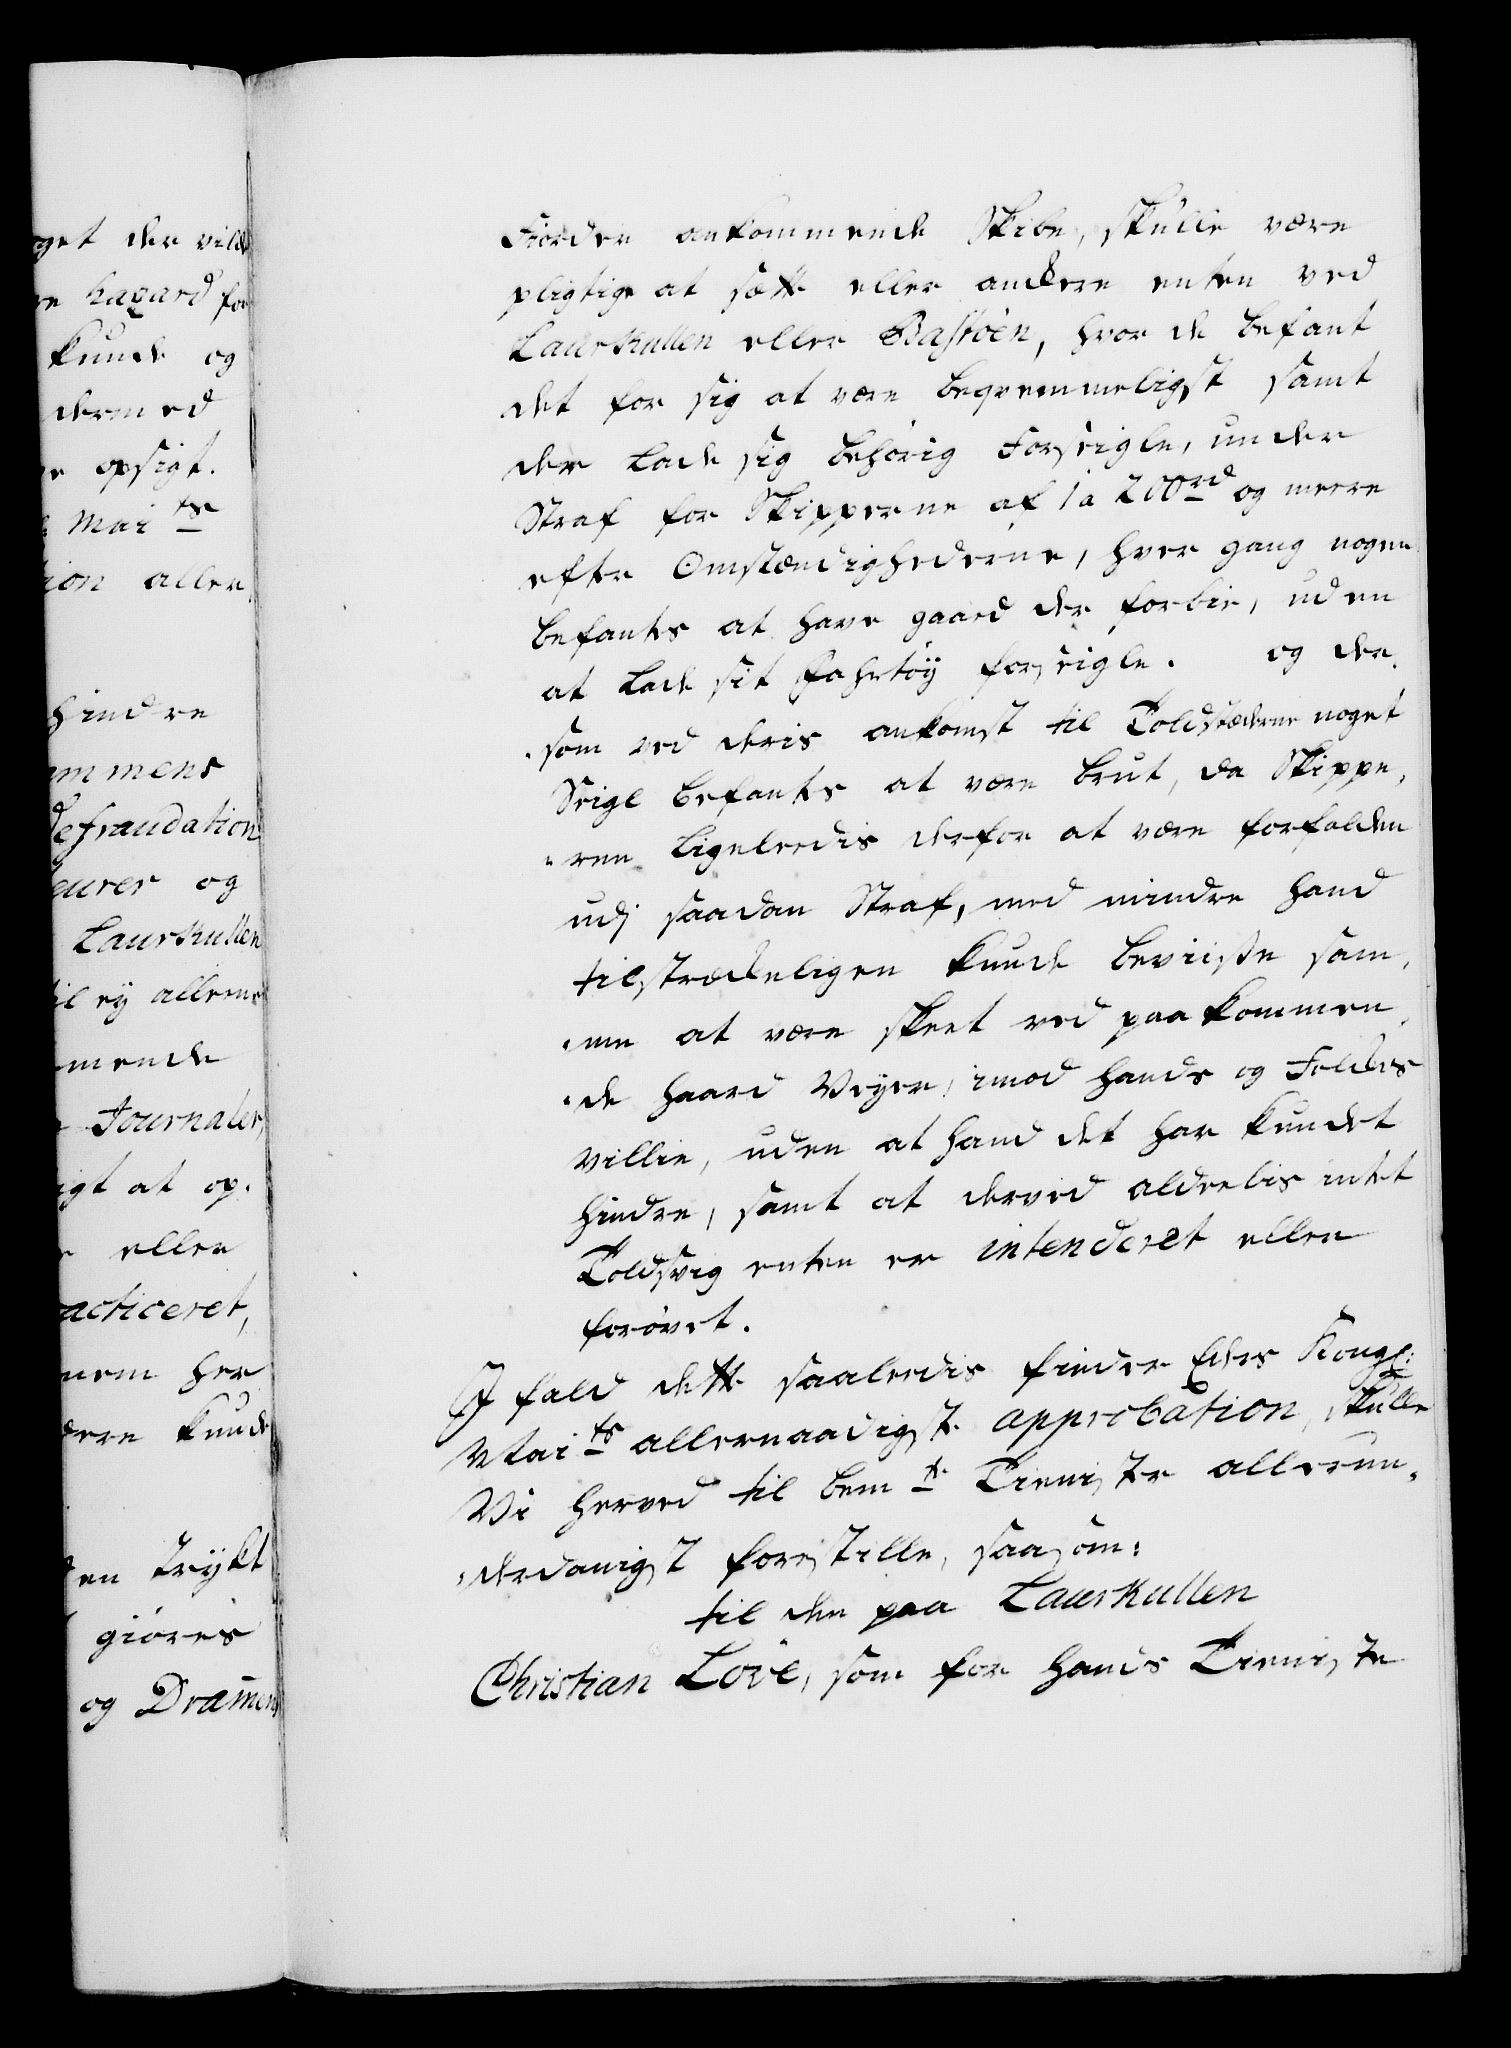 get der vilde
re hazard for
kunde og
dermed
e opsigt.
Mai ts
tion aller
hindre
ommens
defraudation
eurer og
Laurkullen
til ey allene
mende
Journaler,
igt at op-
eller
acticeret,
nem her
dere kunde
en trykt
giöres
og Dramens
Fiorden ankommende Skibe, skulle være
pligtige at sætte eller anckre enten ved
Laurkullen eller Bastöen, hvor de befant
det for sig at være beqvemmeligst samt
der lade sig behörig Forseigle, under
Straf for Skipperne af 1 a 200 rd og meere
efter Omstændighederne, hver gang nogen
befantes at have gaaed der forbie, uden
at lade sit Fahrtöy forseigle. og der-
-som ved deris ankomst til Toldstæderne noget
Seigl befantes at være brut, da Skippe-
-ren ligeledis derfor at være forfalden
udj saadan Straf, med mindre hand
tilstrækeligen kunde beviiße sam-
-me at være skeet ved paakommen-
-de haard Veyer, imod hands og Folckes
villie, uden at hand det har kundet
hindre, samt at derved aldeelis intet
Toldsvig enten er intenderet eller
forövet.
I fald dette saaledis finder Eders Kongl:
Mai ts allernaadigste approbation, skulle
Vi herved til bem te Tieniste allerun-
-derdanigst forestille, saasom:
til den paa Laurkullen
Christian Löve, som for hands Tieniste